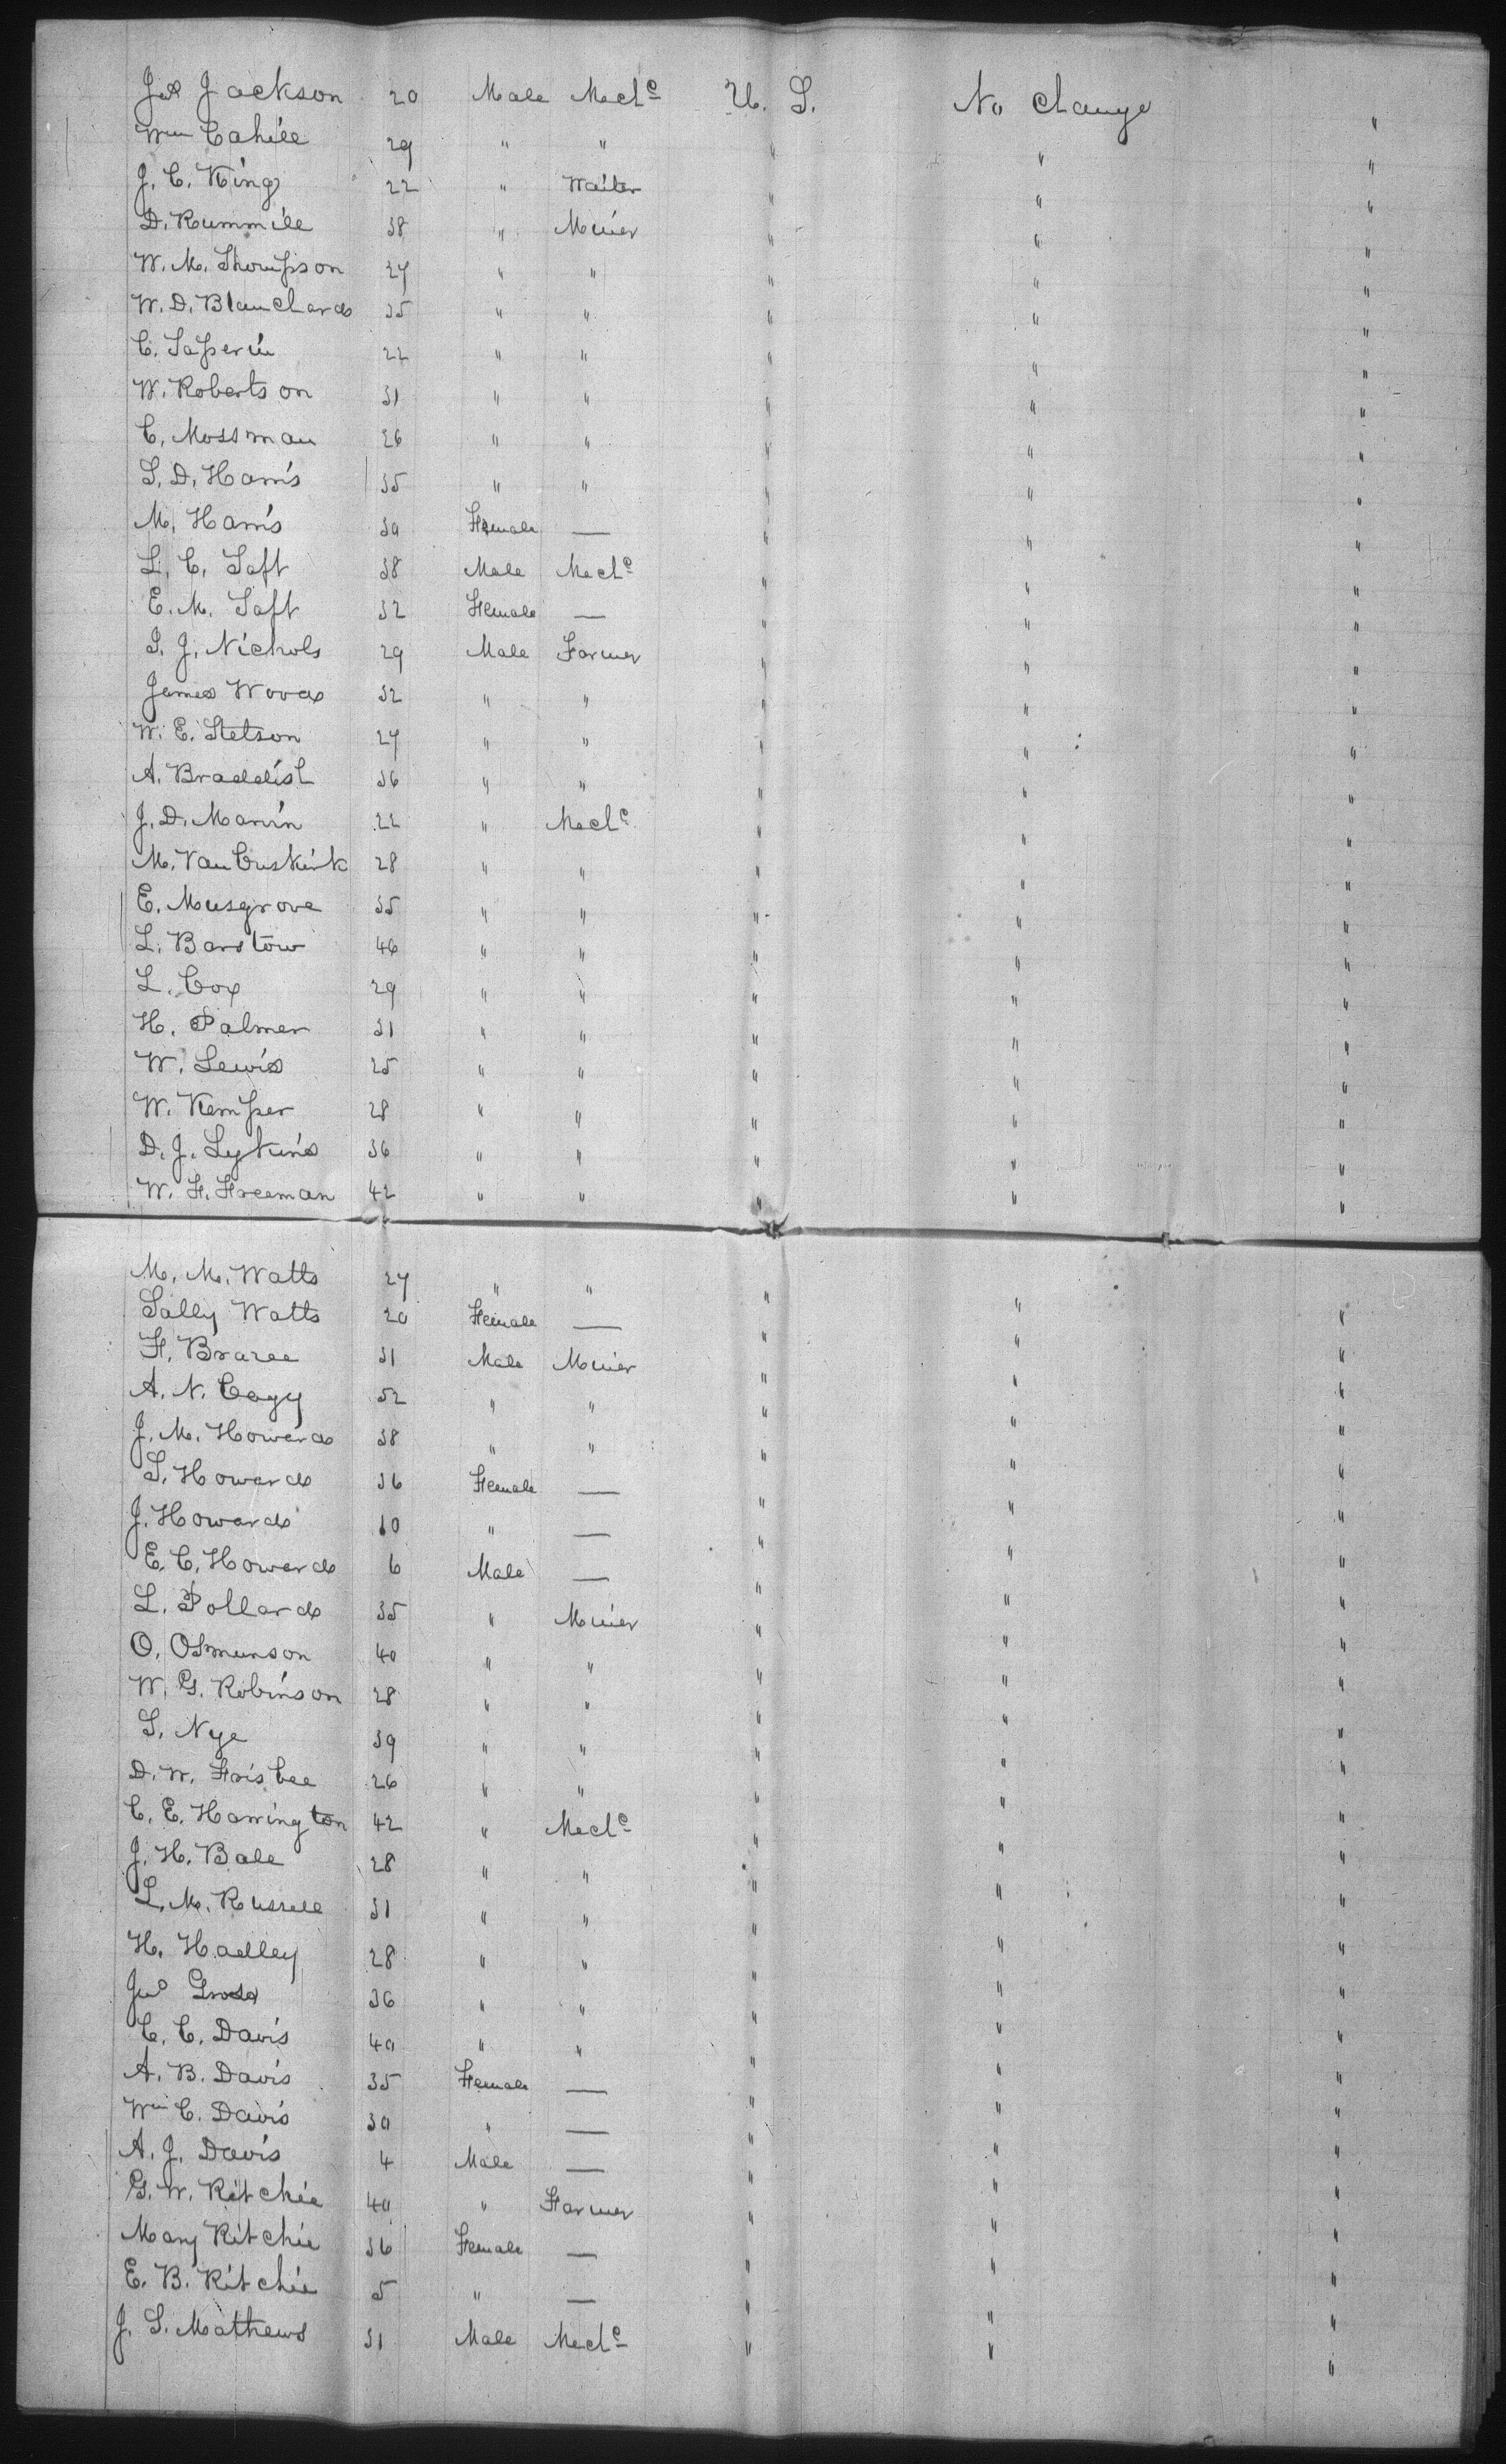 Jno Jackson 20 Male Mech U. S. No change "
Wm Cahill 29 " " " " "
J. C. King 22 " Waiter " " "
D. Rummill 38 " Miner " " "
W. M. Thompson 27 " " " " "
W. D. Blanchard 35 " " " " "
C. Taperin 22 " " " " "
W. Robertson 31 " " " " "
C. Mossman 26 " " " " "
S. D. Harris 35 " " " " "
M. Harris 30 Female — " " "
L. C. Taft 38 Male Mech " " "
E. M. Taft 32 Female — " " "
S. J. Nichols 29 Male Farmer " " "
James Woods 32 " " " " "
W. E. Stetson 27 " " " " "
A. Braddish 36 " " " " "
J. D. Marvin 22 " Mech " " "
M. VanBuskirk 28 " " " " "
E. Musgrove 35 " " " " "
L. Barstow 46 " " " " "
L. Cox 29 " " " " "
H. Palmer 31 " " " " "
W. Lewis 25 " " " " "
W. Kemper 28 " " " " "
D. J. Lykins 36 " " " " "
W. F. Freeman 42 " " " " "
M. M. Watts 27 " " " " "
Sally Watts 20 Female — " " "
F. Brazee 31 Male Miner " " "
A. N. Cagy 52 " " " " "
J. M. Howard 38 " " " " "
S. Howard 36 Female — " " "
J. Howard 10 " — " " "
E. C. Howard 6 Male — " " "
L. Pollard 35 " Miner " " "
O. Osmunson 40 " " " " "
W. G. Robinson 28 " " " " "
S. Nye 39 " " " " "
D. W. Frisbee 26 " " " " "
C. E. Harrington 42 " Mech " " "
J. H. Bale 28 " " " " "
L. M. Russell 31 " " " " "
H. Hadley 28 " " " " "
Jno Gross 36 " " " " "
C. C. Davis 40 " " " " "
A. B. Davis 35 Female — " " "
Wm C. Davis 30 " — " " "
A. J. Davis 4 Male — " " "
G. W. Ritchie 40 " Farmer " " "
Mary Ritchie 36 Female — " " "
E. B. Ritchie 5 " — " " "
J. S. Mathews 31 Male Mech " " "